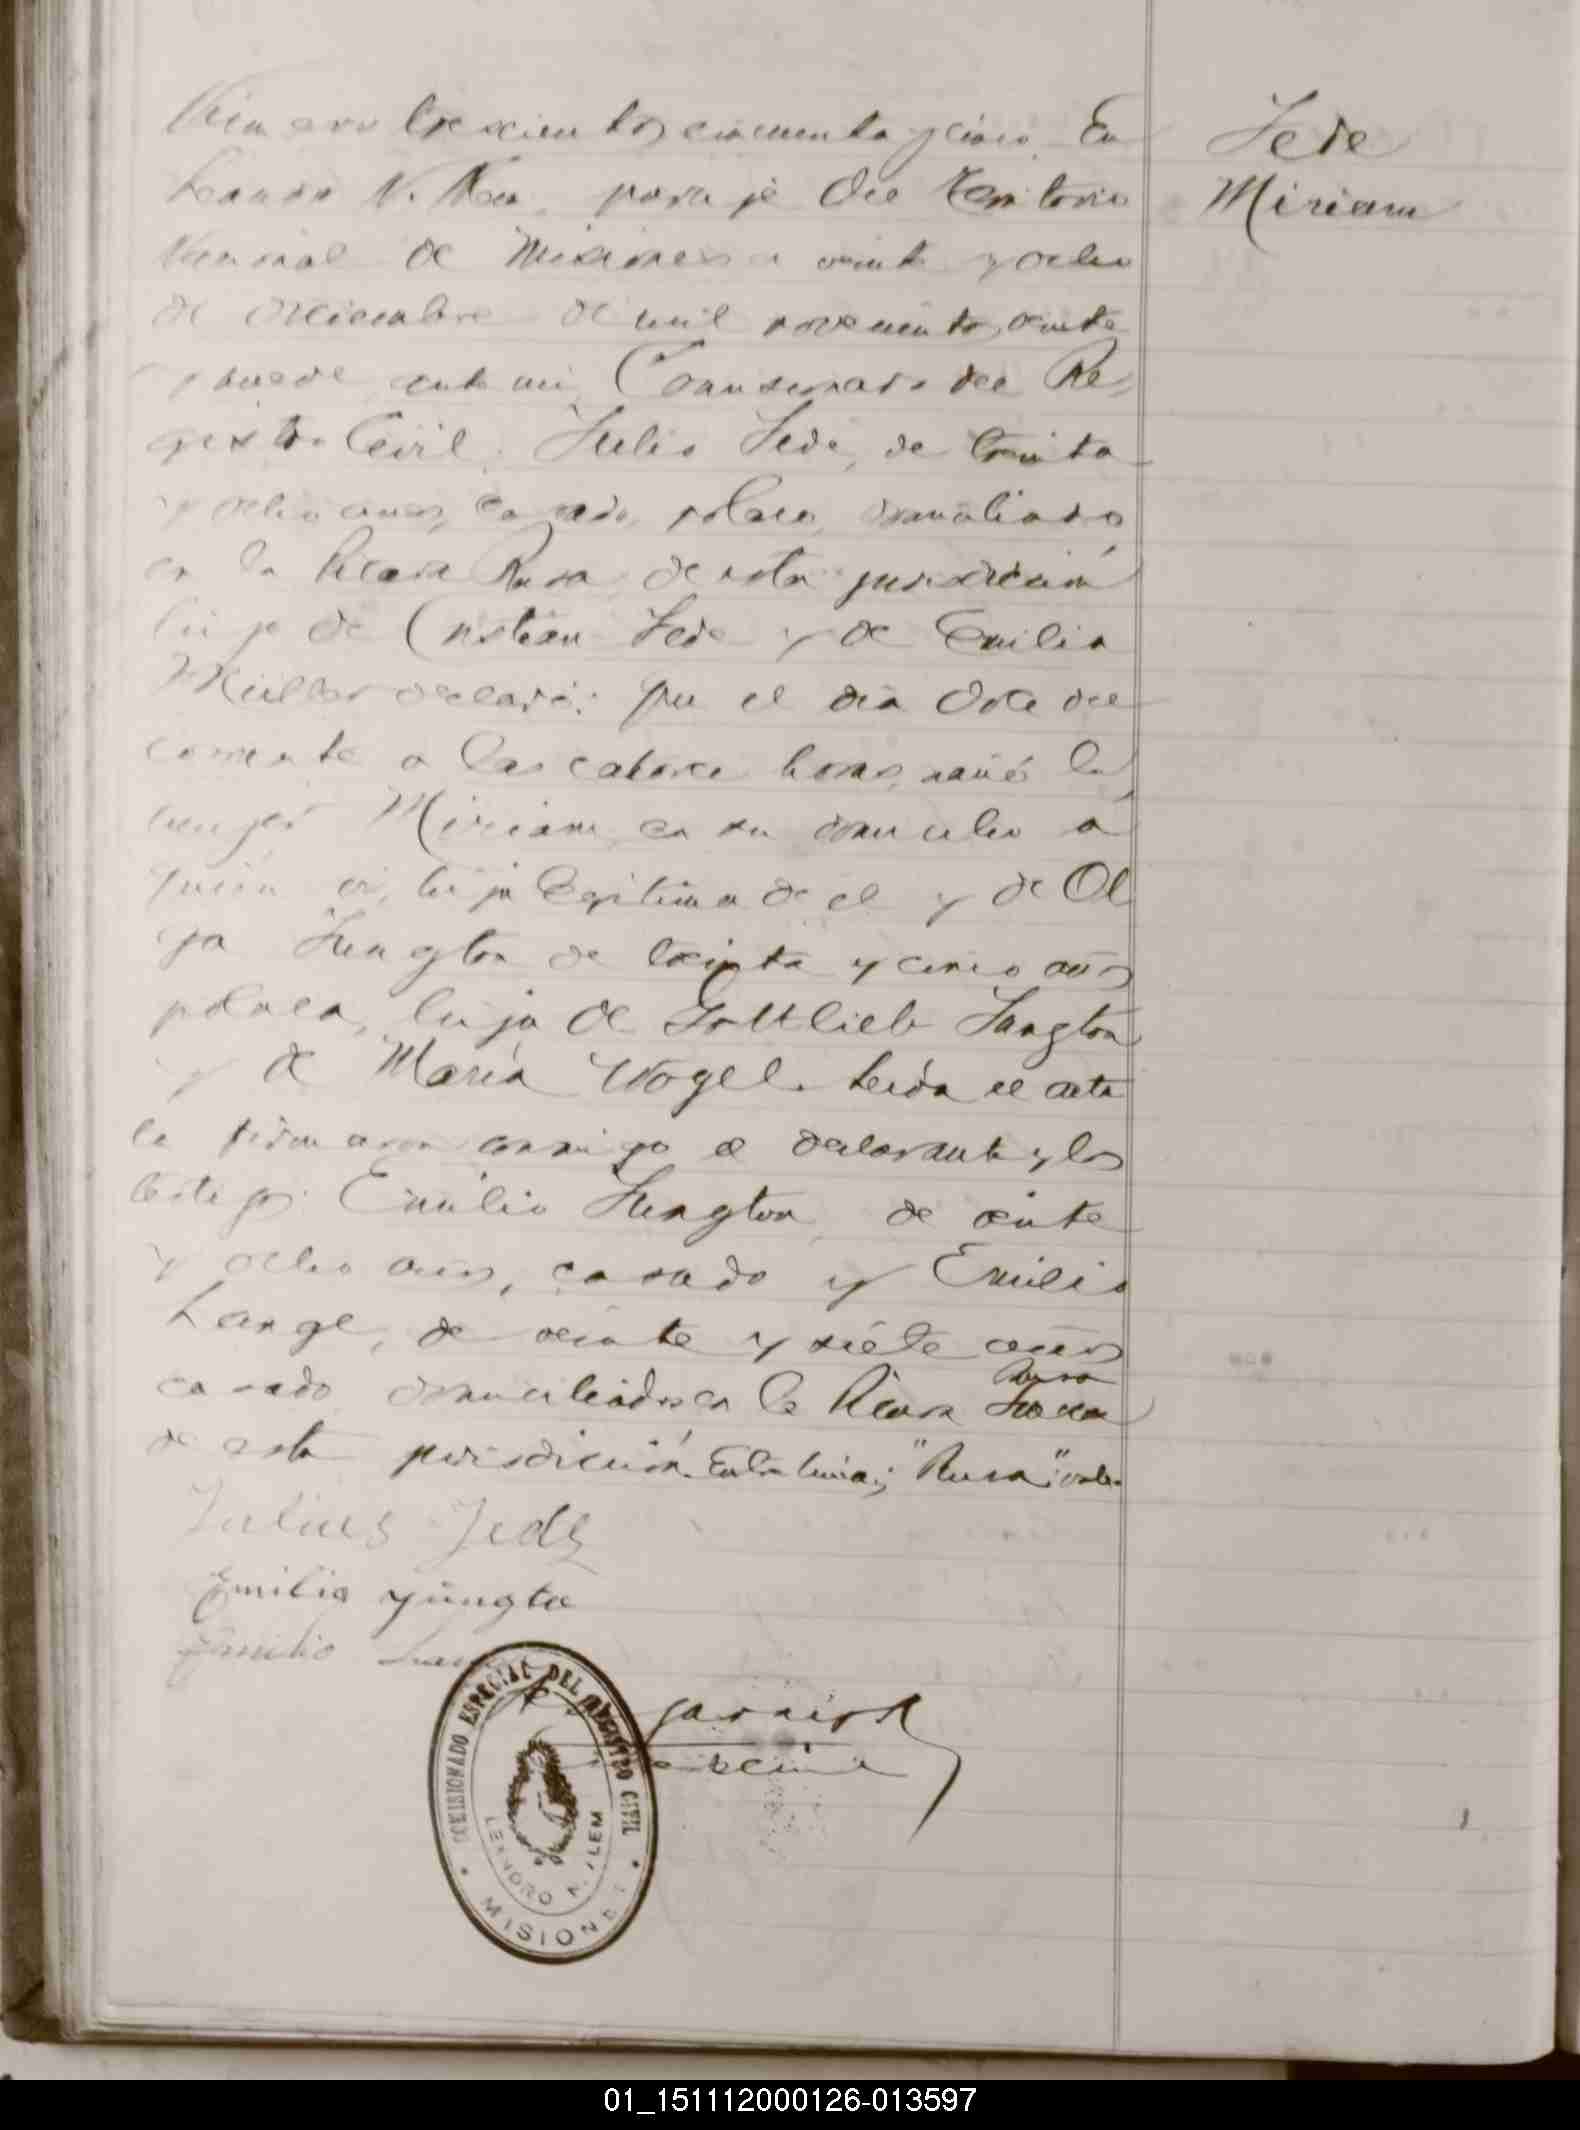 Número trescientos cincuenta y cinco. En
Leandro N. Alem, paraje del Territorio
Nacional de Misiones a veinte y ocho
de diciembre de mil novecientos veinte
y nueve, ante mi, Comisionado del Re-
gistro Civil, Julio Jede, de treinta
y ocho años, casado, polaco, domiciliado
en la Picada Rusa de esta jurisdicción
hijo de Cristian Jede y de Emilia
Müller declaró: Que el día doce del
corriente a las catorce horas, nació la
mujer Miriam, en su domicilio a
quién vi, hija legitima de el y de Ol
ga Jungton de treinta y cinco años
polaca, hija de Gottlieb Jungton
y de María Wogel. Leida el acta
la firmaron conmigo el declarante y los
testigos: Emilio Jungton, de veinte
y ocho años, casado y Emilio
Lange, de veinte y siete años
Rusa
casado domiciliados en la Picada
de esta jurisdicción. Entre linea; "Rusa": vale.
Julius Jede
Emilio Yüngto
Emilio
Jede
Miriam
COMISIONADO ESPECIAL DEL REGISTRO CIVIL
LEANDRO N. ALEM
MISIONES
01_151112000126-013597